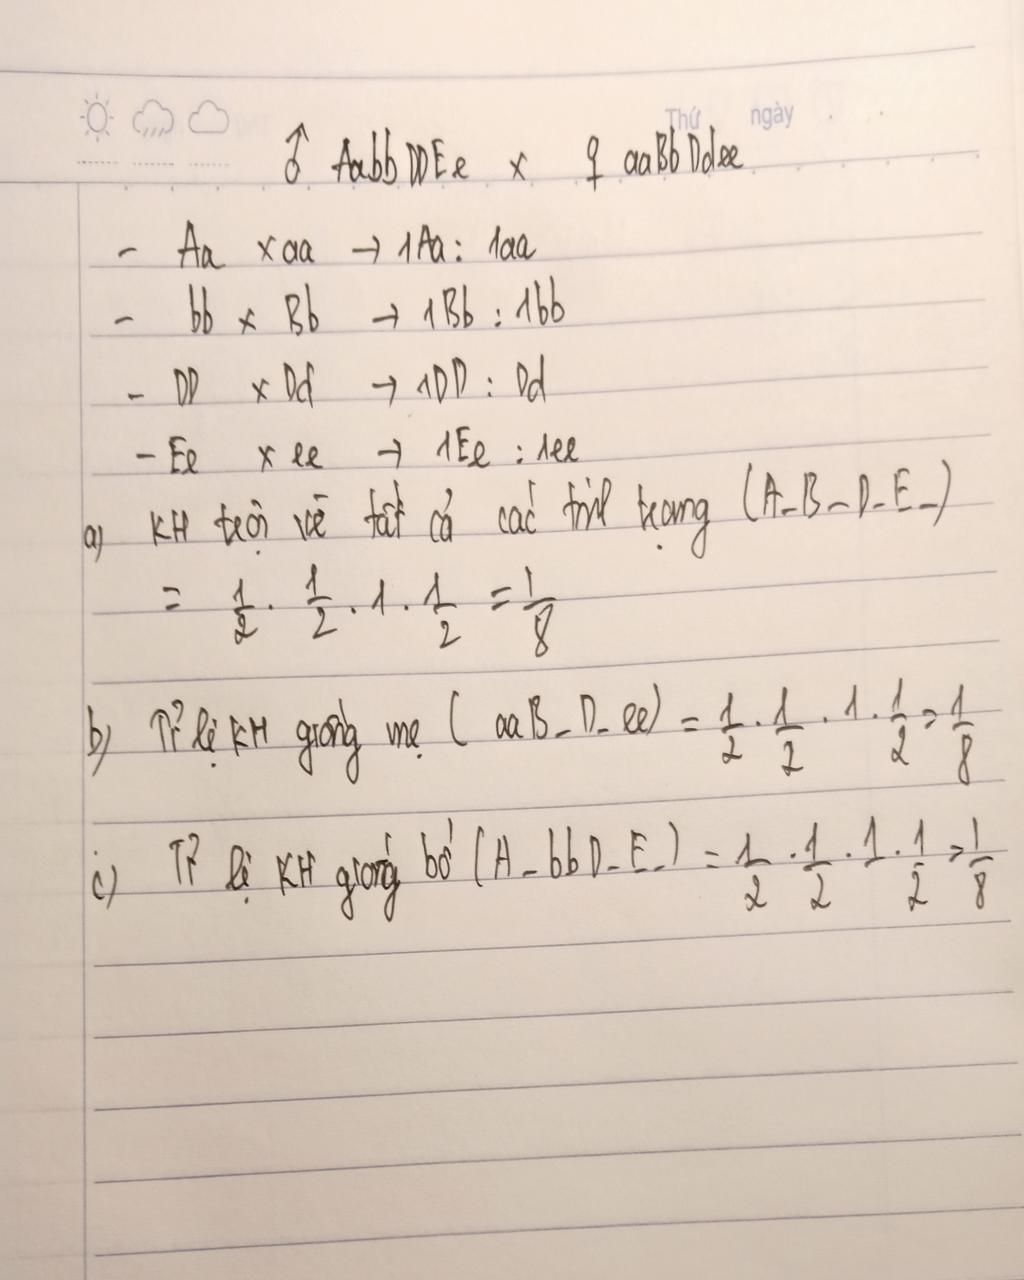 Thứ ngày
♂ AabbDDEe x ♀ aaBbDdee
- Aa x aa → 1Aa : 1aa
- bb x Bb → 1Bb : 1bb
- DD x Dd → 1DD : Dd
- Ee x ee → 1Ee : 1ee
a) KH trội về tất cả các tính trạng (A_B_D_E_)
= 1/2 . 1/2 . 1 . 1/2 = 1/8
b) Tỉ lệ KH giống mẹ ( aaB_D_ee) = 1/2 . 1/2 . 1 . 1/2 = 1/8
c) Tỉ lệ KH giống bố (A_bbD_E_) = 1/2 . 1/2 . 1 . 1/2 = 1/8